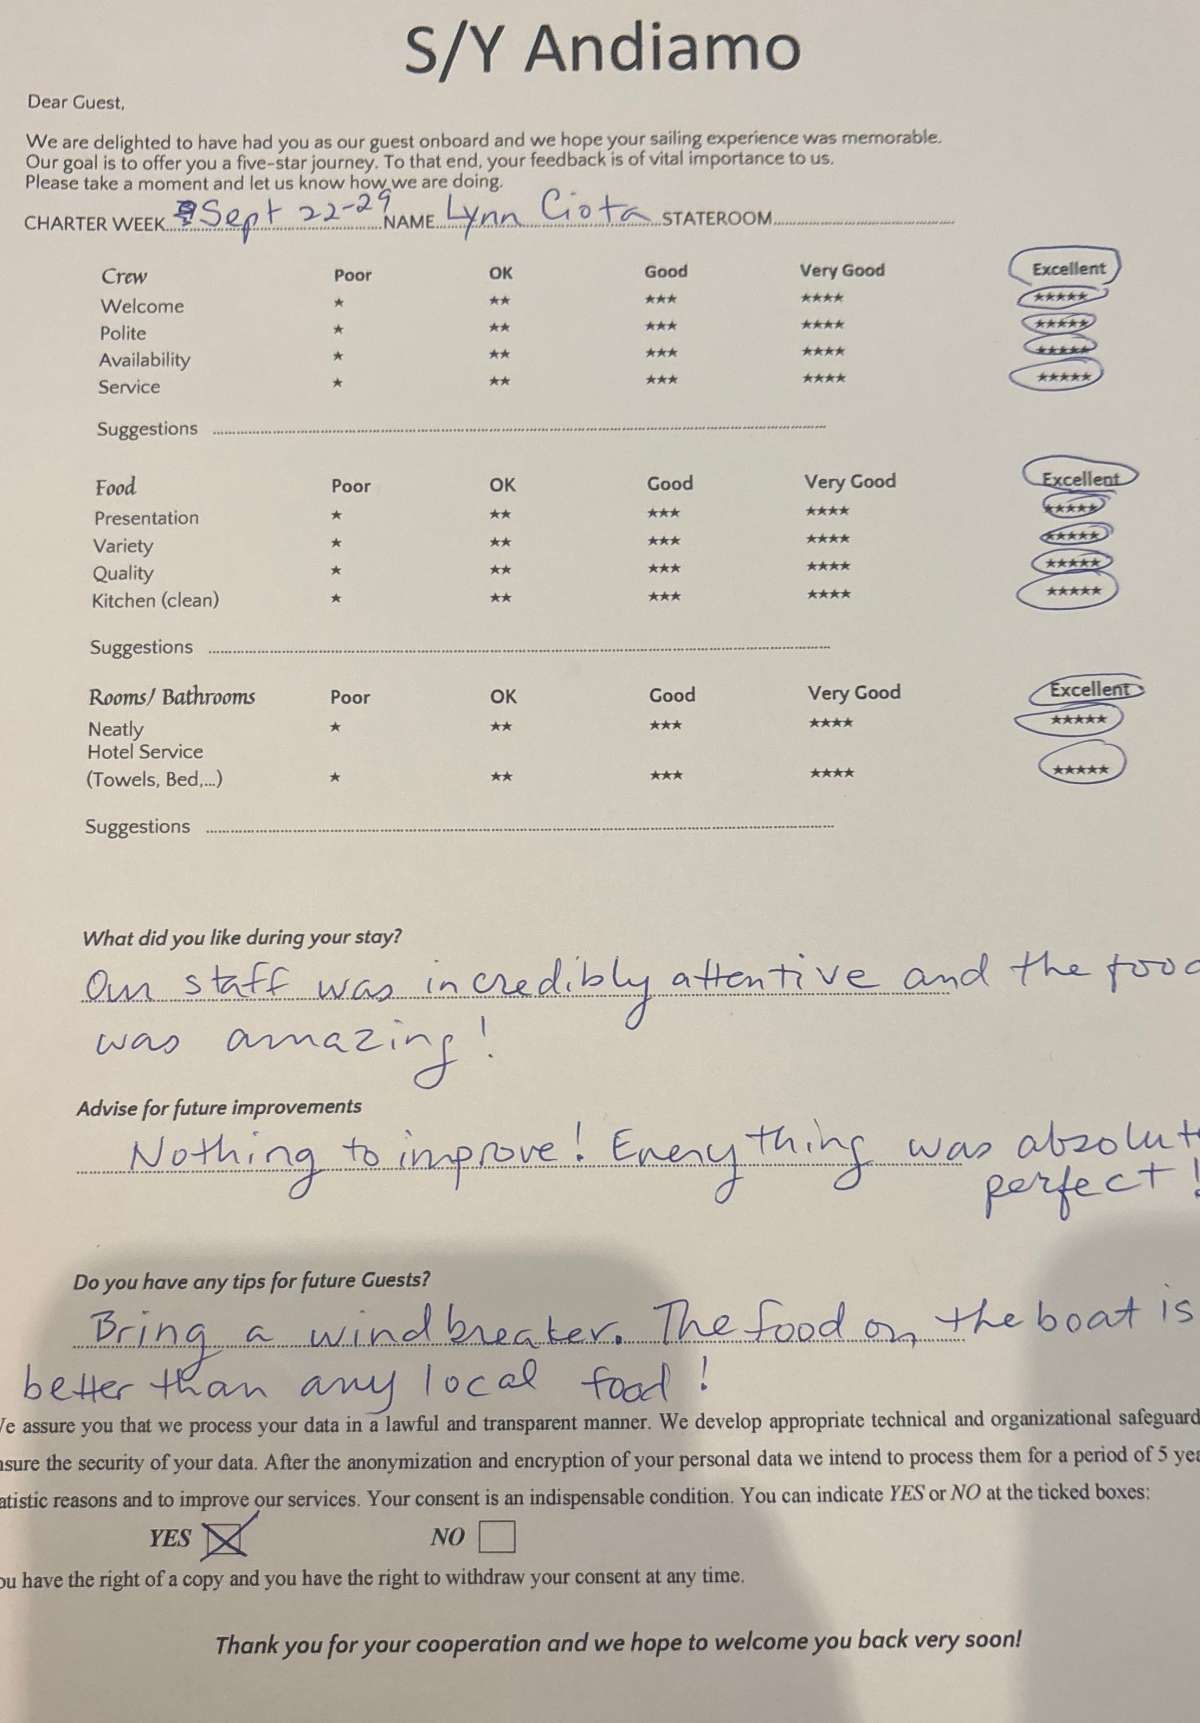 S/Y Andiamo
Dear Guest,
We are delighted to have had you as our guest onboard and we hope your sailing experience was memorable.
Our goal is to offer you a five-star journey. To that end, your feedback is of vital importance to us.
Please take a moment and let us know how we are doing.
CHARTER WEEK Sept 22-29 NAME Lynn Ciota STATEROOM
Crew Poor OK Good Very Good Excellent
Welcome ★ ★★ ★★★ ★★★★ ★★★★★
Polite ★ ★★ ★★★ ★★★★ ★★★★★
Availability ★ ★★ ★★★ ★★★★ ★★★★★
Service ★ ★★ ★★★ ★★★★ ★★★★★
Suggestions
Food Poor OK Good Very Good Excellent
Presentation ★ ★★ ★★★ ★★★★ ★★★★★
Variety ★ ★★ ★★★ ★★★★ ★★★★★
Quality ★ ★★ ★★★ ★★★★ ★★★★★
Kitchen (clean) ★ ★★ ★★★ ★★★★ ★★★★★
Suggestions
Rooms/ Bathrooms Poor OK Good Very Good Excellent
Neatly ★ ★★ ★★★ ★★★★ ★★★★★
Hotel Service
(Towels, Bed,...) ★ ★★ ★★★ ★★★★ ★★★★★
Suggestions
What did you like during your stay?
Our staff was incredibly attentive and the food
was amazing!
Advise for future improvements
Nothing to improve! Everything was absolut
perfect!
Do you have any tips for future Guests?
Bring a windbreaker. The food on the boat is
better than any local food!
e assure you that we process your data in a lawful and transparent manner. We develop appropriate technical and organizational safeguard
sure the security of your data. After the anonymization and encryption of your personal data we intend to process them for a period of 5 yea
atistic reasons and to improve our services. Your consent is an indispensable condition. You can indicate YES or NO at the ticked boxes:
YES NO
ou have the right of a copy and you have the right to withdraw your consent at any time.
Thank you for your cooperation and we hope to welcome you back very soon!